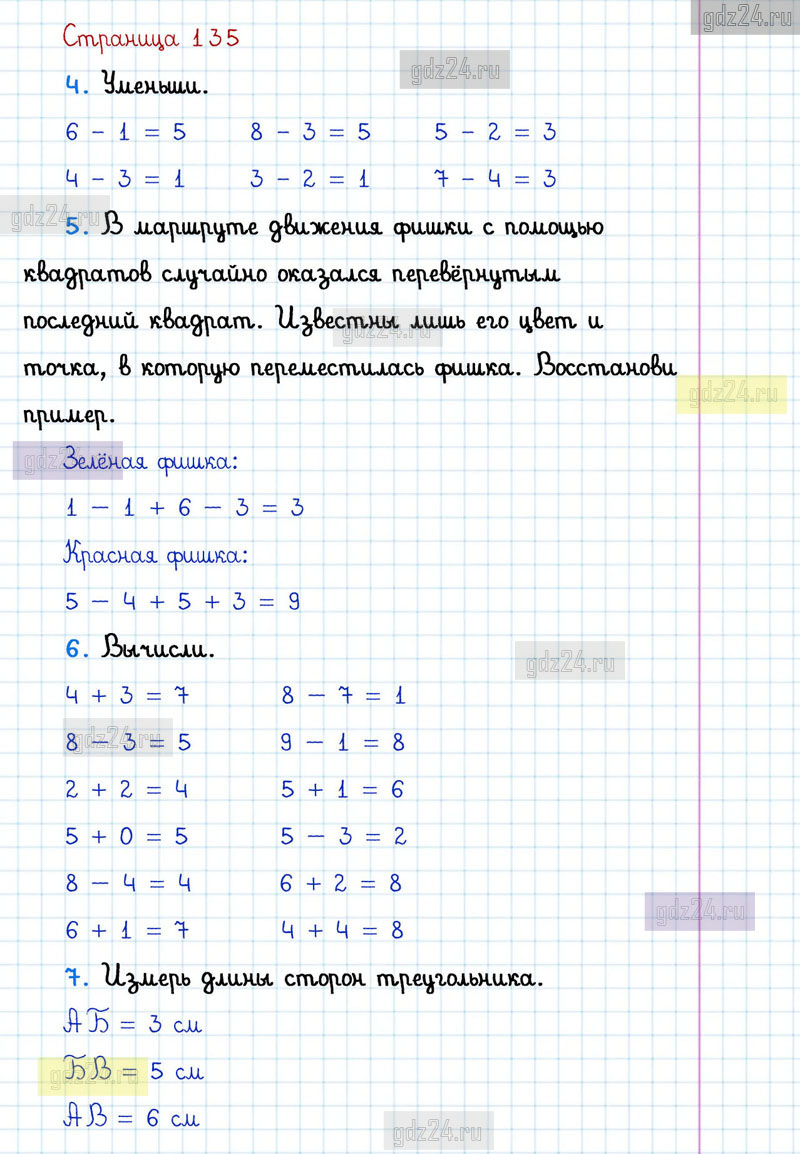 gdz24.ru
Страница 135
gdz24.ru
4. Уменьши.
6 − 1 = 5 8 − 3 = 5 5 − 2 = 3
4 − 3 = 1 3 − 2 = 1 7 − 4 = 3
gdz24.ru
5. В маршруте движения фишки с помощью
квадратов случайно оказался перевёрнутым
последний квадрат. Известны лишь его цвет и
gdz24.ru
точка, в которую переместилась фишка. Восстанови
gdz24.ru
пример.
gdz24.ru
Зелёная фишка:
1 − 1 + 6 − 3 = 3
Красная фишка:
5 − 4 + 5 + 3 = 9
6. Вычисли.
gdz24.ru
4 + 3 = 7 8 − 7 = 1
gdz24.ru
8 − 3 = 5 9 − 1 = 8
2 + 2 = 4 5 + 1 = 6
5 + 0 = 5 5 − 3 = 2
8 − 4 = 4 6 + 2 = 8
gdz24.ru
6 + 1 = 7 4 + 4 = 8
7. Измерь длины сторон треугольника.
АБ = 3 см
БВ = 5 см
gdz24.ru
АВ = 6 см
gdz24.ru